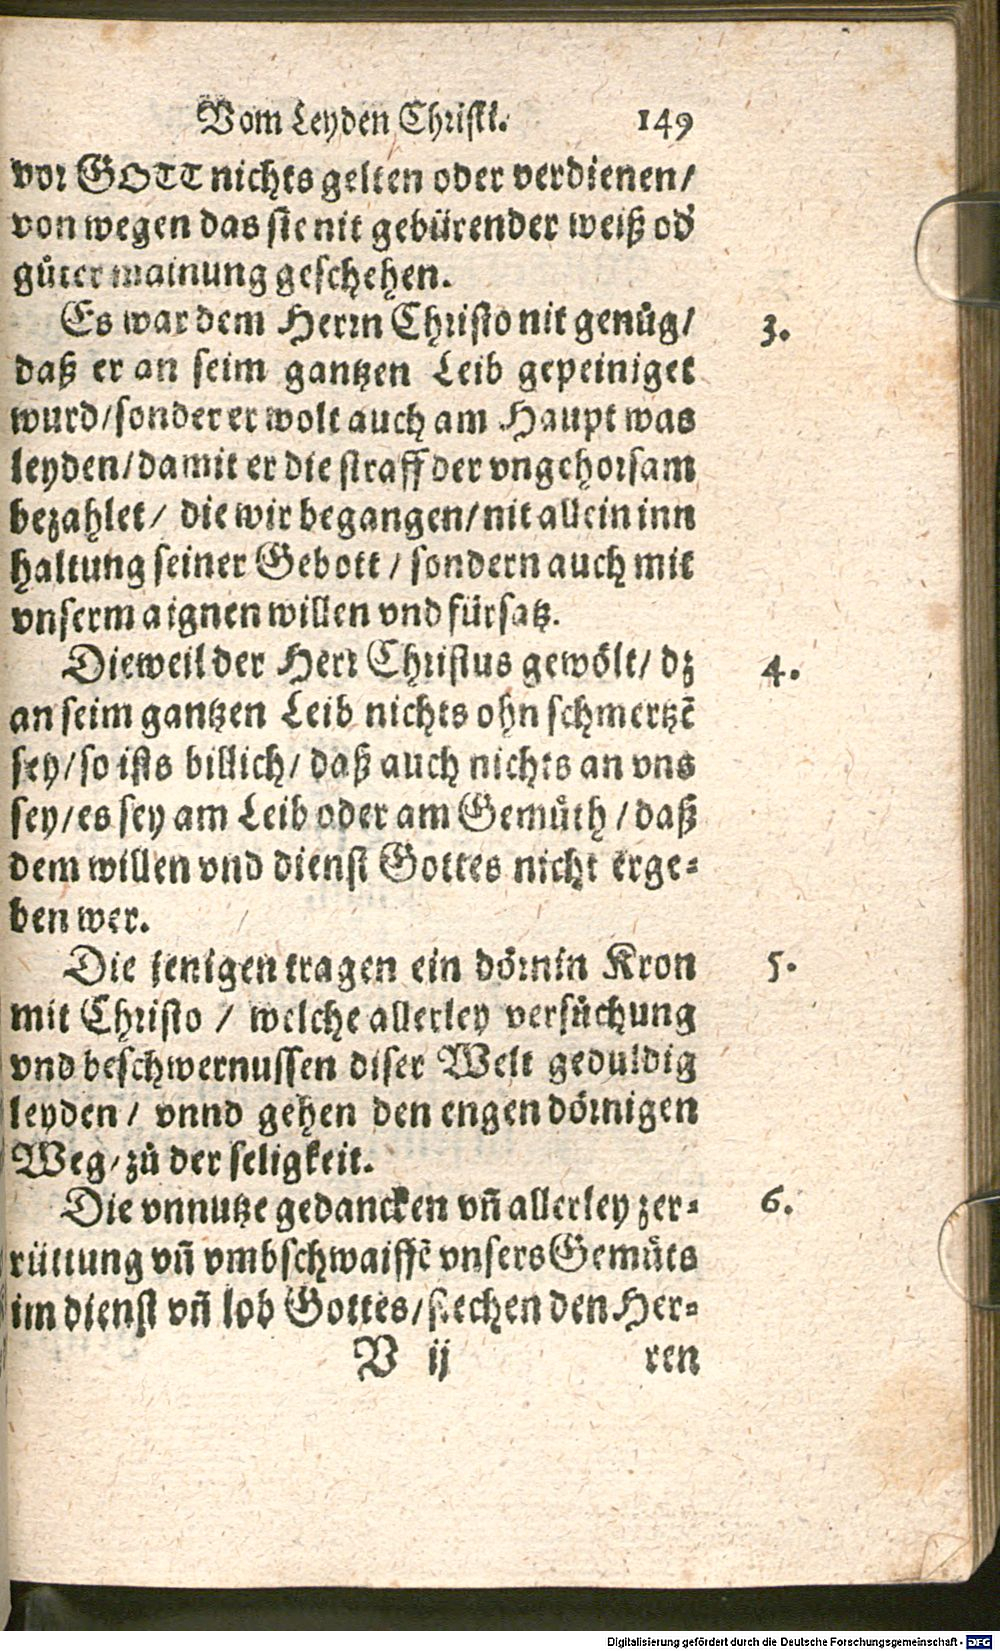 Vom Leyden Christi. 149
vor GOTT nichts gelten oder verdienen/
von wegen das sie nit gebürender weiß od'
gůter mainung geschehen.
Es war dem Herrn Christo nit genůg/ 3.
daß er an seim gantzen Leib gepeiniget
wurd/sonder er wolt auch am Haupt was
leyden/damit er die straff der vngehorsam
bezahlet/ die wir begangen/nit allein inn
haltung seiner Gebott/ sondern auch mit
vnserm aignen willen vnd fürsatz.
Dieweil der Herr Christus gewölt/ dz 4.
an seim gantzen Leib nichts ohn schmertzē
sey/so ists billich/ daß auch nichts an vns
sey/es sey am Leib oder am Gemůth/daß
dem willen vnd dienst Gottes nicht erge-
ben wer.
Die jenigen tragen ein dörnin Kron 5.
mit Christo / welche allerley versůchung
vnd beschwernussen diser Welt geduldig
leyden/ vnnd gehen den engen dörnigen
Weg/zů der seligkeit.
Die vnnutze gedancken vñ allerley zer- 6.
rüttung vñ vmbschwaiffē vnsers Gemůts
im dienst vñ lob Gottes/stechen den Her-
V ij ren
Digitalisierung gefördert durch die Deutsche Forschungsgemeinschaft - DFG